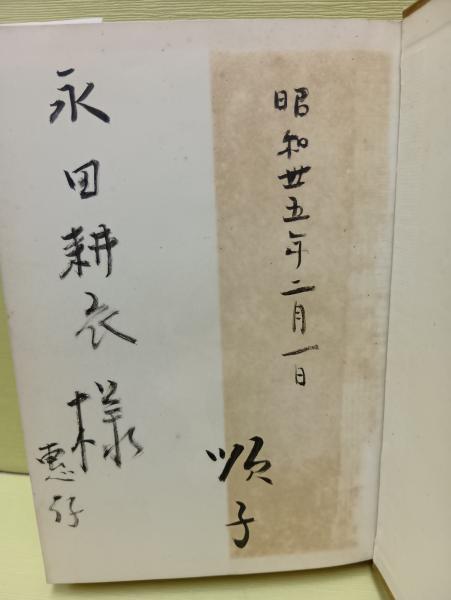 昭和卅五年二月一日
順子
永田耕衣様
恵存